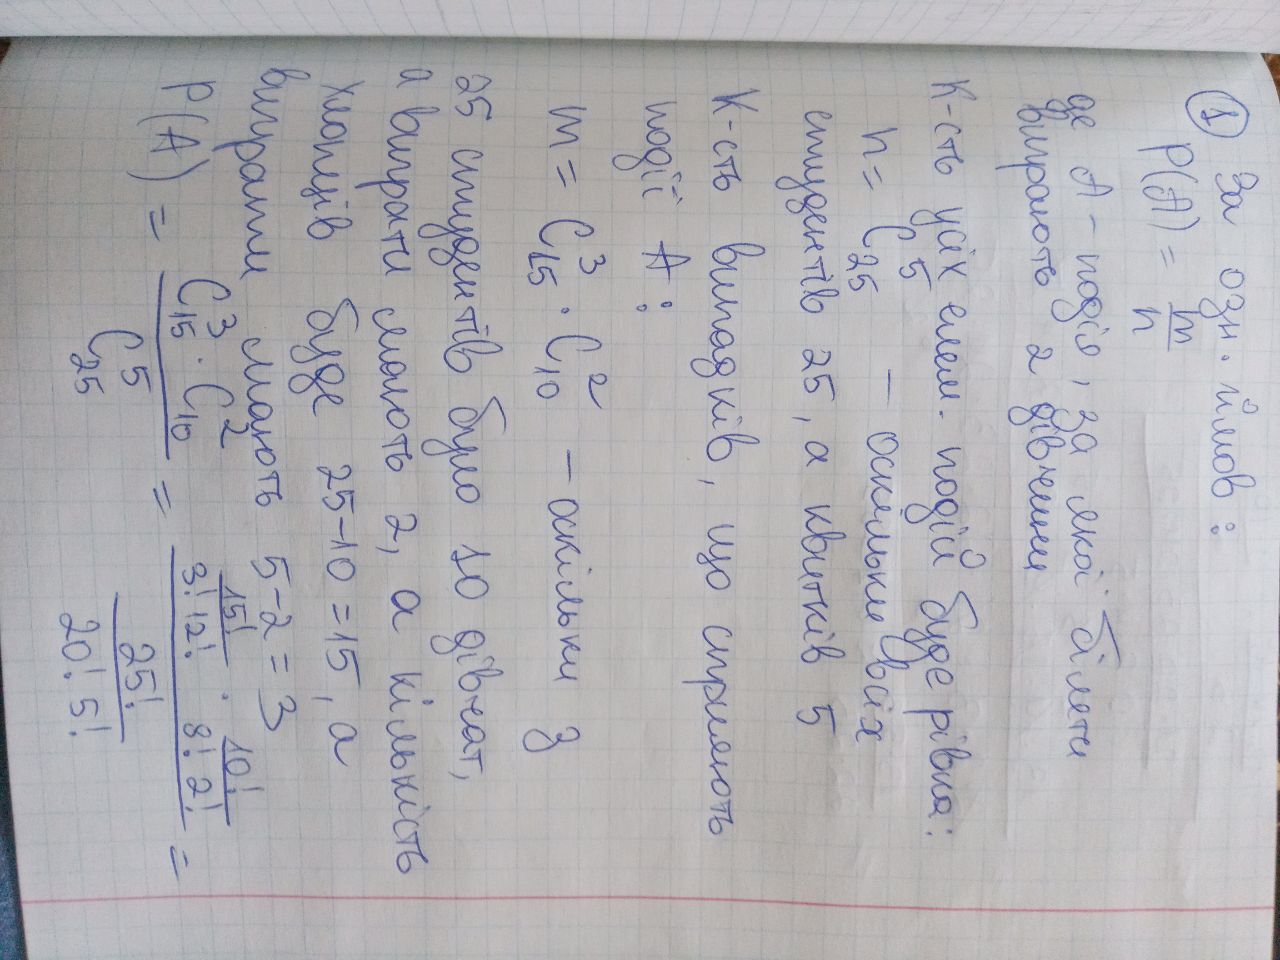 1 За озн. ймов:
P(A) = m/n
де A - подія, за якої білети
виграють 2 дівчини
К-сть усіх елем. подій буде рівна:
n = C₂₅⁵ - оскільки всіх
студентів 25, а квитків 5
К-сть випадків, що сприяють
події A:
m = C₁₅³ · C₁₀² - оскільки з
25 студентів було 10 дівчат,
а виграти мають 2, а кількість
хлопців буде 25-10=15, а
виграти мають 5-2=3
P(A) = (C₁₅³ · C₁₀²)/C₂₅⁵ = (15!/(3! 12!) · 10!/(8! 2!))/(25!/(20! 5!)) =